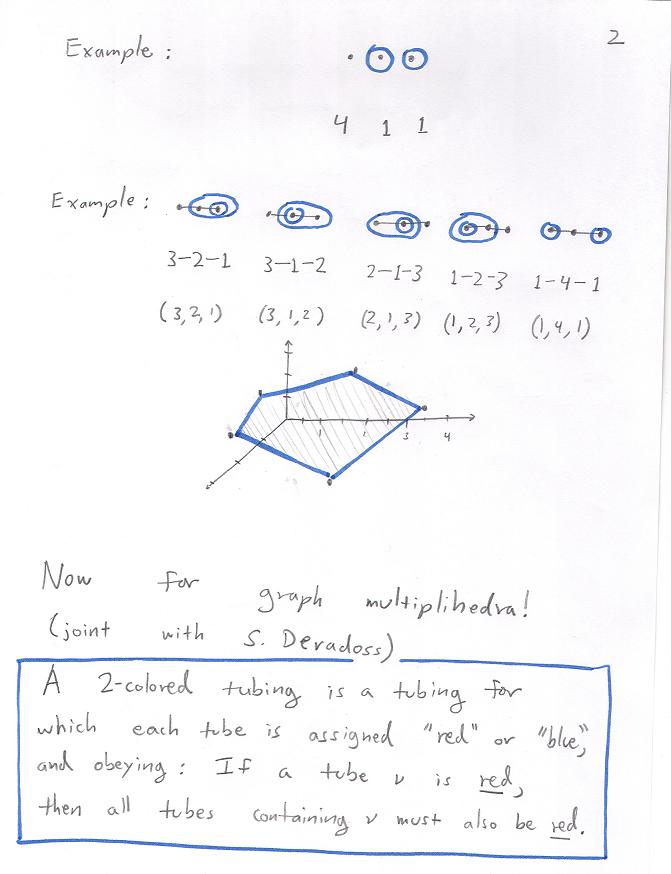 2
Example :
4 1 1
Example :
3-2-1 3-1-2 2-1-3 1-2-3 1-4-1
(3,2,1) (3,1,2) (2,1,3) (1,2,3) (1,4,1)
1 2 3 4
Now for graph multiplihedra!
(joint with S. Devadoss)
A 2-colored tubing is a tubing for
which each tube is assigned "red" or "blue",
and obeying : If a tube v is red,
then all tubes containing v must also be red.